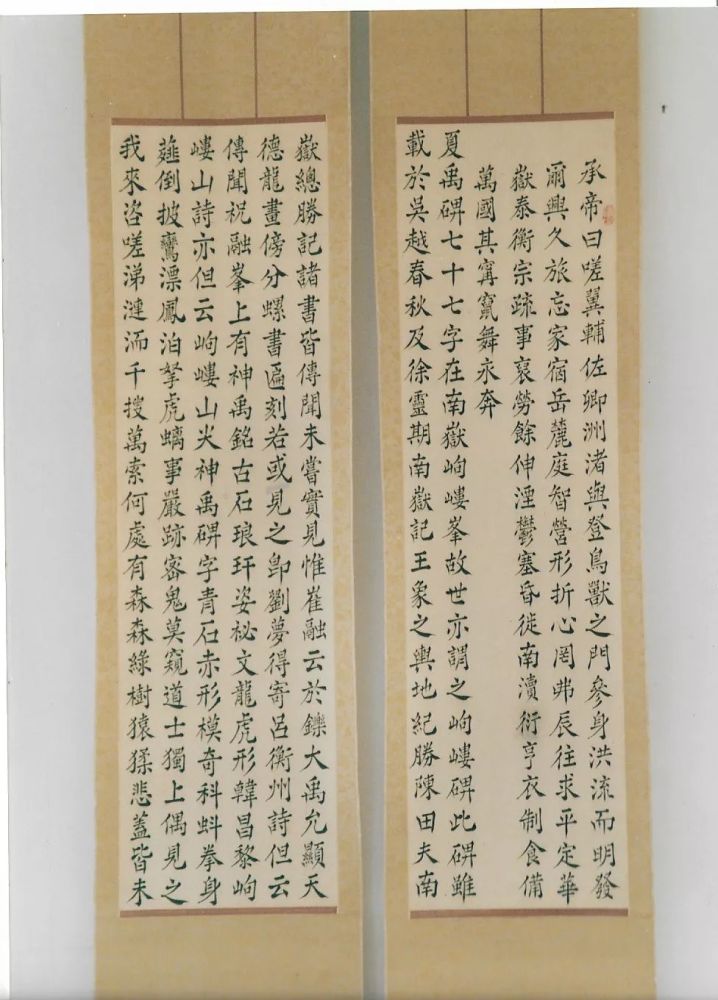 承帝曰嗟翼輔佐卿洲渚與登鳥獸之門參身洪流而明發
爾興久旅忘家宿岳麓庭智營形折心罔弗辰往求平定華
嶽泰衡宗疏事裒勞餘伸湮鬱塞昏徙南瀆衍亨衣制食備
萬國其寧竄舞永奔
夏禹碑七十七字在南嶽岣嶁峯故世亦謂之岣嶁碑此碑雖
載於吳越春秋及徐靈期南嶽記王象之輿地紀勝陳田夫南
嶽總勝記諸書皆傳聞未嘗實見惟崔融云於鑠大禹允顯天
德龍畫傍分螺書匾刻若或見之卽劉夢得寄呂衡州詩但云
傳聞祝融峯上有神禹銘古石琅玕姿祕文龍虎形韓昌黎岣
嶁山詩亦但云岣嶁山尖神禹碑字青石赤形模奇科蚪拳身
薤倒披鸞漂鳳泊拏虎螭事嚴跡密鬼莫窺道士獨上偶見之
我來咨嗟涕漣洏千搜萬索何處有森森綠樹猿猱悲蓋皆未